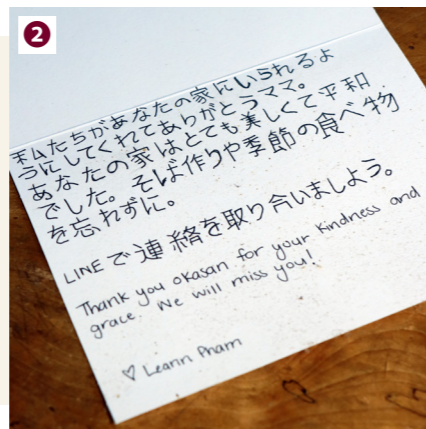 2
私たちがあなたの家にいられるよ
うにしてくれてありがとうママ。
あなたの家はとても美しくて平和
でした。そば作りや季節の食べ物
を忘れずに。
LINEで連絡を取り合いましょう。
Thank you okasan for your kindness and
grace. We will miss you!
♡ Leann Pham